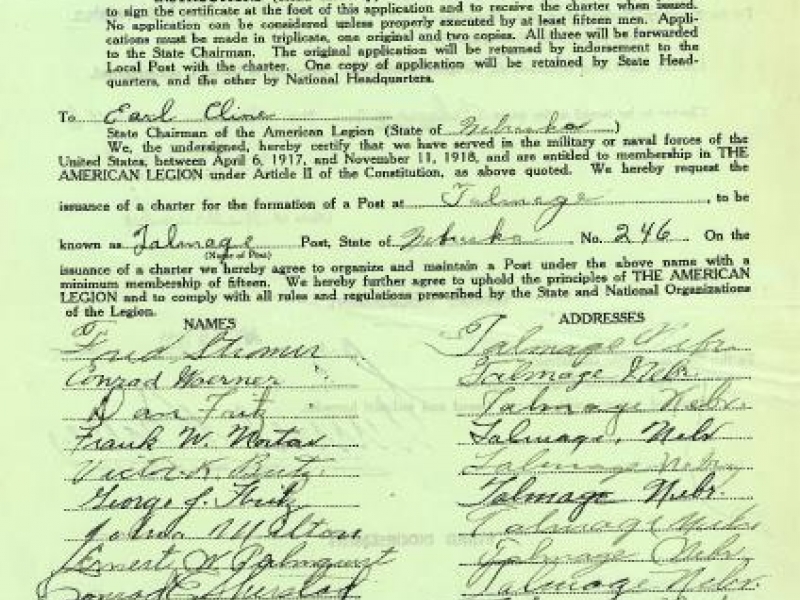 to sign the certificate at the foot of this application and to receive the charter when issued.
No application can be considered unless properly executed by at least fifteen men. Appli-
cations must be made in triplicate, one original and two copies. All three will be forwarded
to the State Chairman. The original application will be returned by indorsement to the
Local Post with the charter. One copy of application will be retained by State Head-
quarters, and the other by National Headquarters.
To Earl Cline
State Chairman of the American Legion (State of Nebraska)
We, the undersigned, hereby certify that we have served in the military or naval forces of the
United States, between April 6, 1917, and November 11, 1918, and are entitled to membership in THE
AMERICAN LEGION under Article II of the Constitution, as above quoted. We hereby request the
issuance of a charter for the formation of a Post at Talmage, to be
known as Talmage Post, State of Nebraska No. 246 On the
(Name of Post)
issuance of a charter we hereby agree to organize and maintain a Post under the above name with a
minimum membership of fifteen. We hereby further agree to uphold the principles of THE AMERICAN
LEGION and to comply with all rules and regulations prescribed by the State and National Organizations
of the Legion.
NAMES ADDRESSES
Fred Talmage Nebr.
Conrad Woerner Talmage Nebr.
Dan Fritz Talmage Nebr.
Frank W. Talmage, Nebr
Victor Talmage Nebr
George J. Fritz Talmage Nebr.
Milton Talmage Nebr
Ernest Palmquist Talmage Nebr.
Conrad Talmage Nebr.